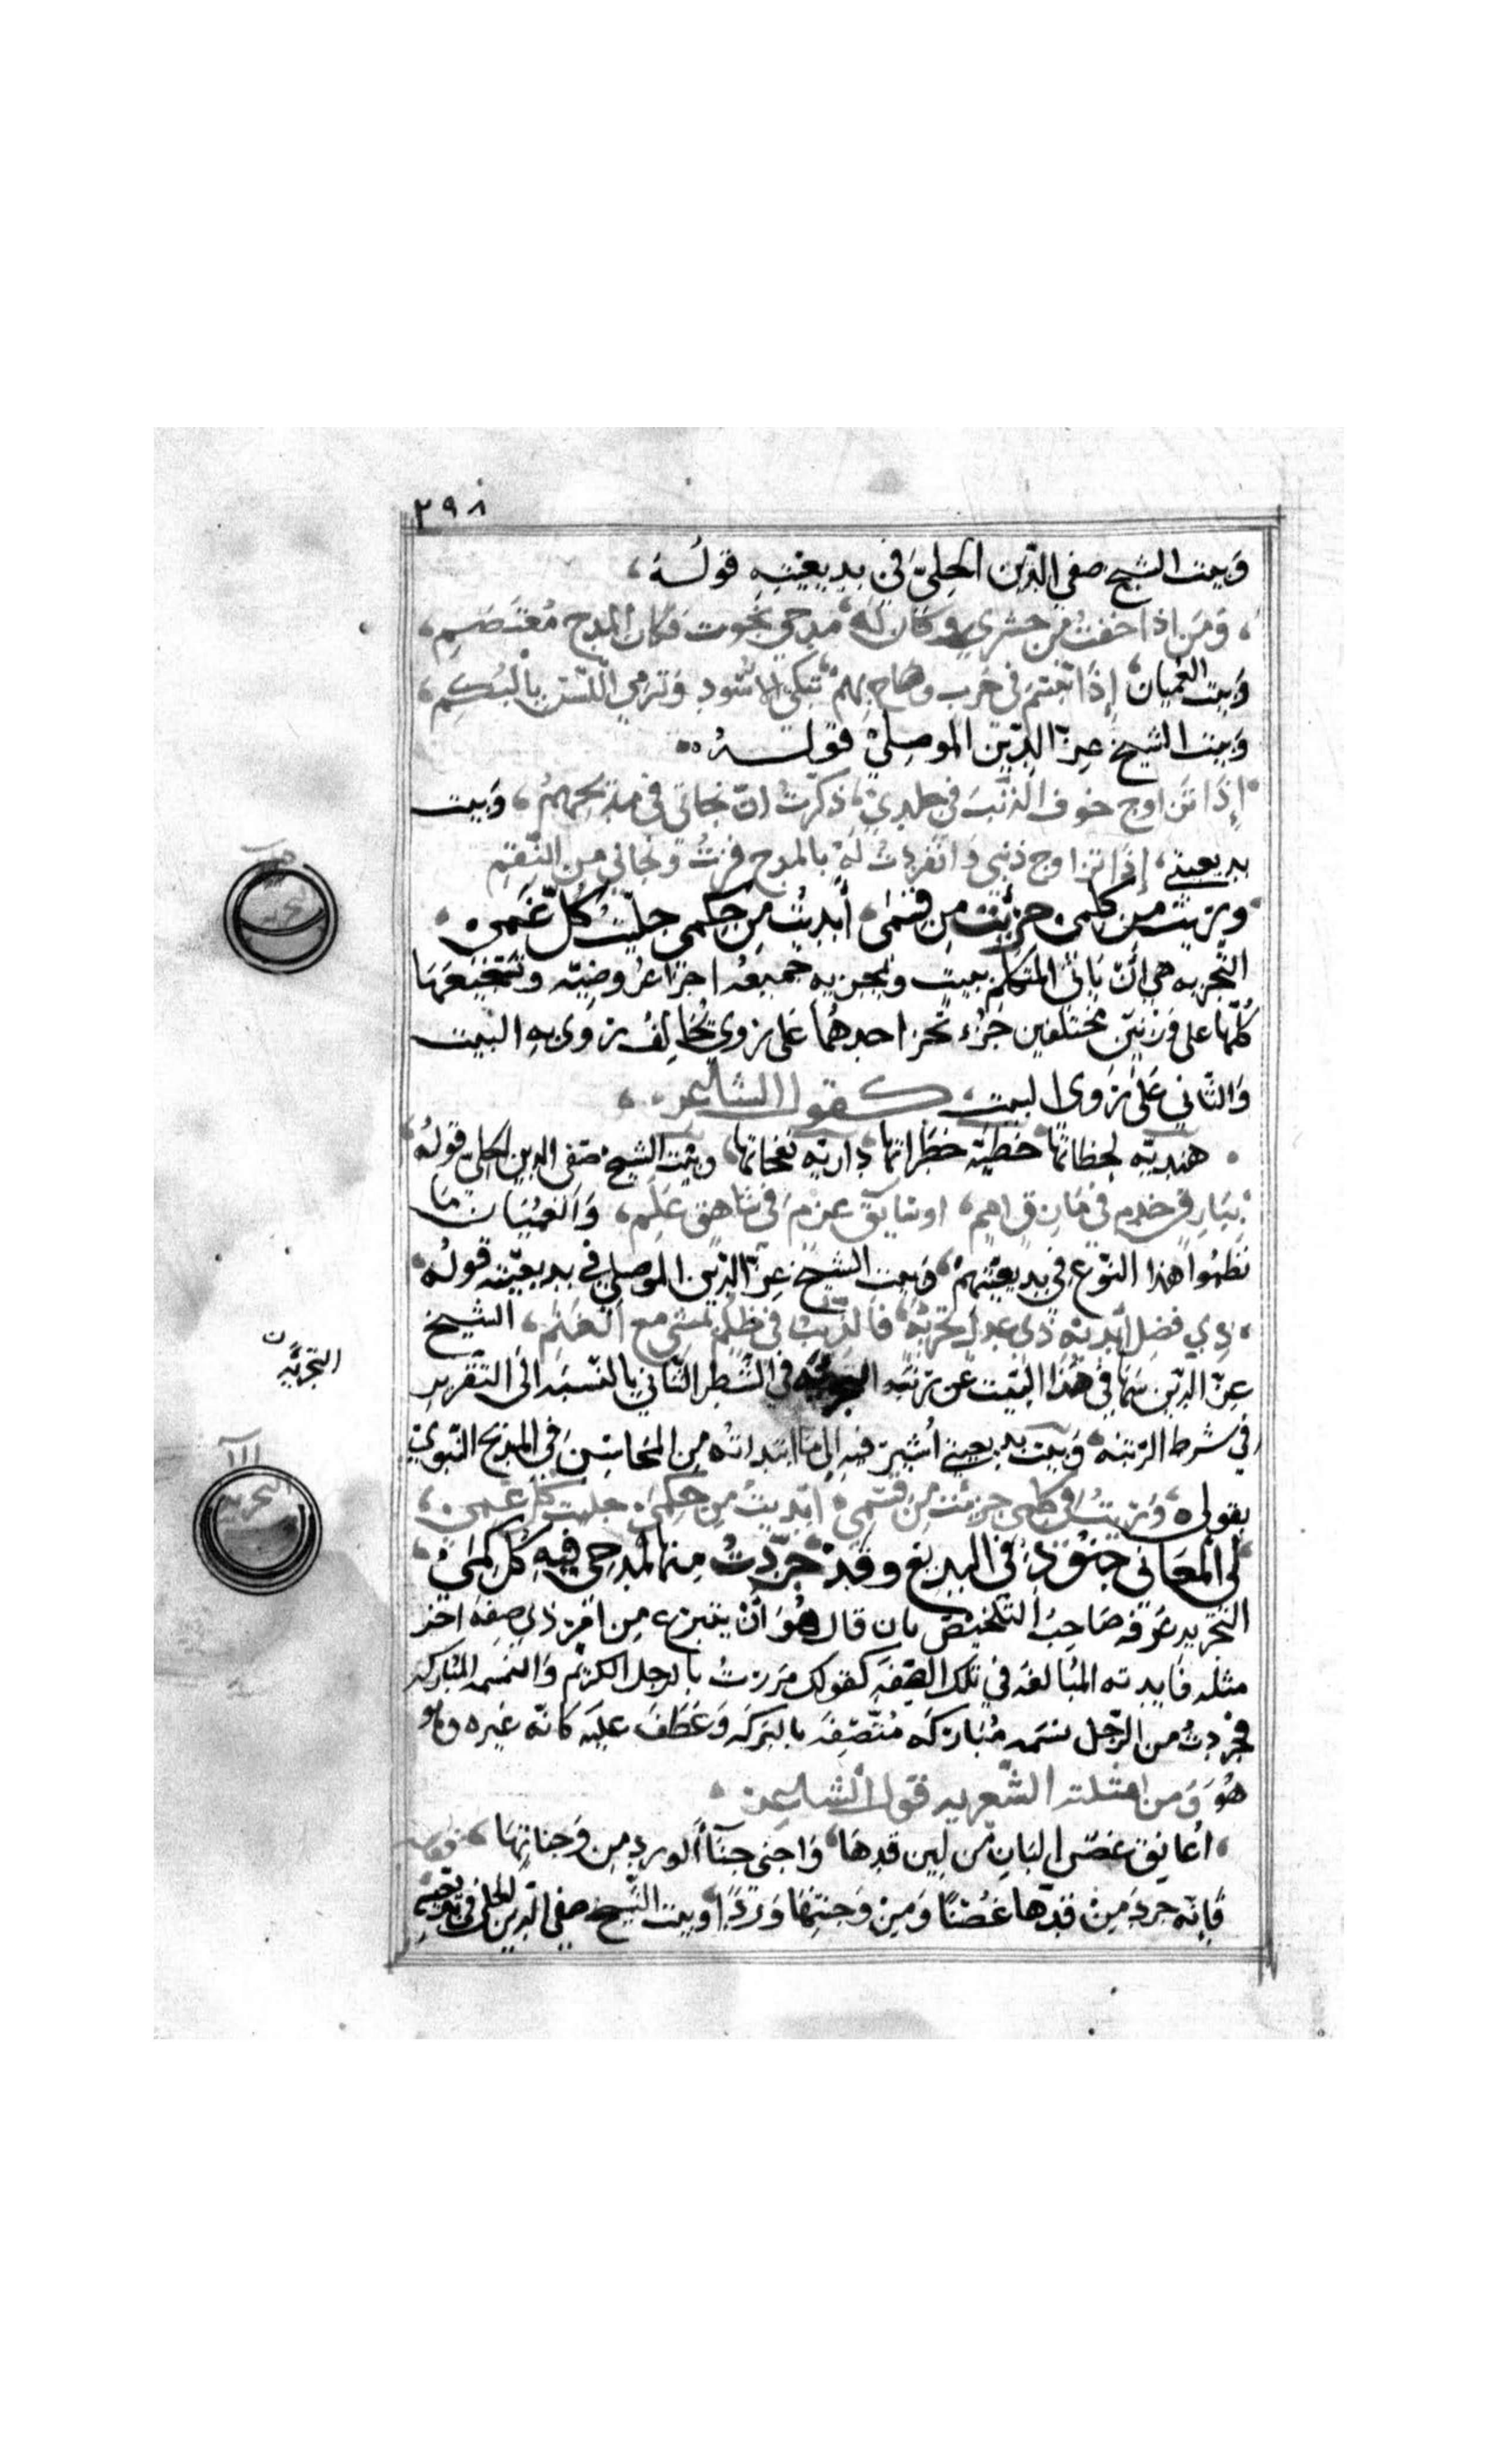 ٢٩٨
وَبيت الشيخ صفي الدّين الحِليّ في بديعيّتِهِ قولُه،
، وَمَن اذا خفتُ من حشري وَكان لَهُ، مدحي نجوت فكان المدح مُعتَصَمِي،
وَبيت العُميان، إذَا تبسّمَ في حَرب وصاح بِهِمْ، تبكي الاسُودِ وَترمي اللّسن بالبَكَمِ،
وَبيت الشيخ عزّ الدّين الموصليّ قولــهُ
إذَا تزاوج خوف الذنبَ في خلدي، ذكرتُ انّ نجاتي في مدحهمُ، وَبيت
بديعيتي، إذَا تزاوج ذنبي وَانفردتُ لَهُ بالمدح فزتُ ونجاني من النِّقَمِ
وريت من كلمي جزيت من قسمي، أبديتُ من حِكمي جليت كلّ عَمِي،
التّجزيه هي أن يَاتي المتكلّم ببيت ويجزيه جميعه اجزاء عروضيّه ويسجعَها
كلّها على وَزنين مختلفين جُزء بجزء احدهُما عَلى رَوي يُخالِف رَوى بهِ البيت
وَالثّاني عَلى رَوى البيت كقول الشاعر
هنديّه لحظاتها خَطيّه خطَراتها دَاريّه نفحَاتها، وبيت الشيخ صَفي الدين الحلي قولهُ
ببَارِق خذم في مَازق امم، او سَايق عَزم في شاهق عَلَم، وَالعُميَان مَا
نظمُوا هذا النّوع في بديعيّتهمْ، وَبيت الشيخ عزّ الدّين الموصلي في بديعيّته قولُه
ذِي فضل أبدته ذي عدل تجزيُه، فالذيبُ في ظلم يمشي مع الغنَمِ، الشيخ
عزّ الدّين سَها في هَذا البَيْت عَن رتبَه التجزيه في الشّطر الثّاني بالنّسبَه الى التقرير
في شرط الرّتبه، وَبيت بديعيتي أُشير فيه إلى مَا ابتداته من المَحاسنَ في المديح النّبوي
بقولي، وَريتُ في كلمي جزيت من قسمي، ابديتُ من حكمي جليت كلّ عَمِي،
لي المعَاني جنودٌ في البديع وقدْ جرّدتُ منها لمدحي فيهِ كُلّ كمي،
التجريد عرّفه صَاحب التلخيص بان قال هوَ أنْ ينتزع مِن امر ذي صِفه اخر
مثله فايدته المُبَالغه في تلك الصّفه كقولك مَررتُ بالرجل الكريم وَالنسمه المُبَاركه
فجردتُ من الرّجل نسَمه مُبَاركه مُتّصِفه بالبركه وَعَطفَ عليه كانّه غيره وهو
هُوَ وَمن امثلته الشّعريه قول الشاعر
، أعَانِق غصْن البَانِ من لين قدهَا، وَاجني جنَا الورد مِن وَجناتِهَا،
فإنّه جردَ مِنْ قدّها غُصْنًا وَمِنْ وَجنتيهَا وَردًا، وبيت الشّيخ صفي الدّين الحلي في بديعيّتِه
التجزيه
التجريد